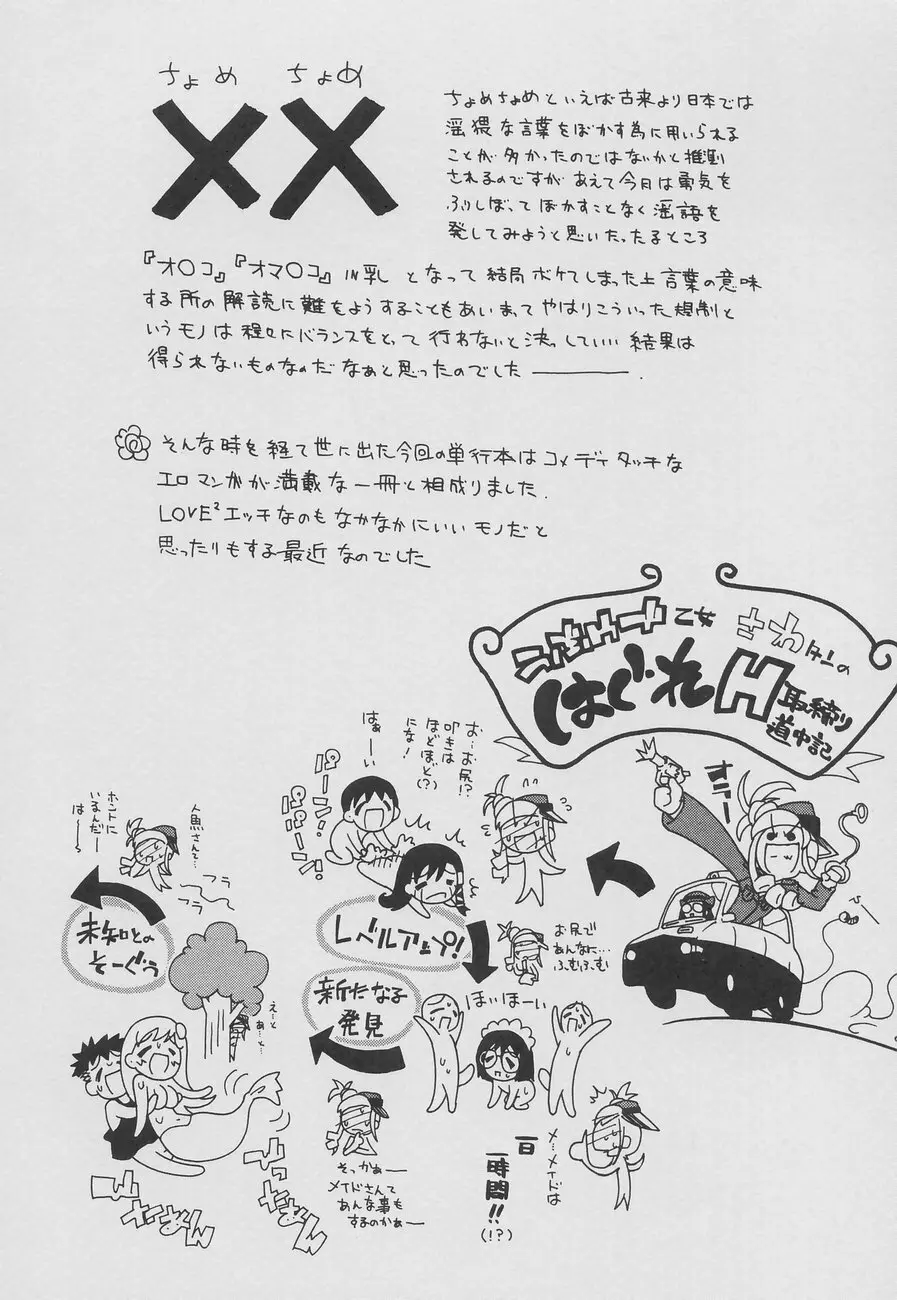 ちょめ ちょめ
××
ちょめちょめといえば古来より日本では
淫猥な言葉をぼかす為に用いられる
ことが多かったのではないかと推測
されるのですが あえて今日は勇気を
ふりしぼってぼかすことなく淫語を
発してみようと思いたったるところ
『オ○コ』『オマ○コ』IN乳 となって結局ボケてしまった上言葉の意味
する所の解読に難をようすることもあいまって やはりこういった規制と
いうモノは程々にバランスをとって行わないと決っしていい結果は
得られないものなのだなぁと思ったのでした――――.
そんな時を経て世に出た今回の単行本はコメディタッチな
エロマンガが満載な一冊と相成りました.
LOVE²エッチなのもなかなかにいいモノだと
思ったりもする最近なのでした
乙女 さわ
はぐれH取締り
道中記
お…お尻!?
叩きは
ほどほど(?)
にな!
はぁーい
パーン!
レベルアップ!
お尻で
あんなに…
ふむふむ
ほいほーい
メ…メイドは
一日
一時間!!
(!?)
新たなる
発見
そっかぁー
メイドさんて
あんな事も
するのかぁー
人魚さんて…
ホントに
いるんだー
は〜〜
フラ
フラ
未知との
そーぐう
え…と
あ…と…